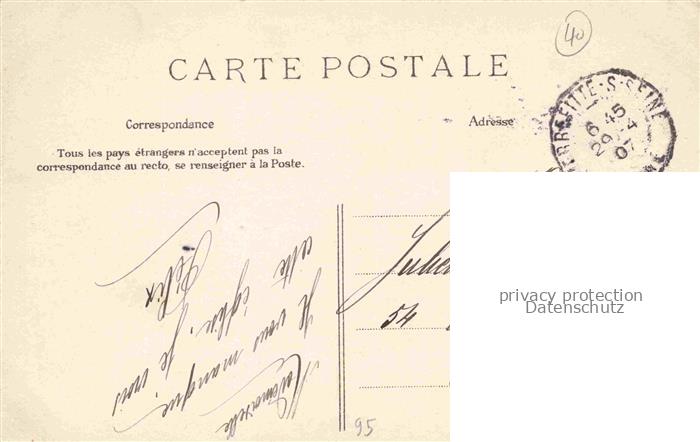 40
CARTE POSTALE
Correspondance
Adresse
Tous les pays étrangers n'acceptent pas la
correspondance au recto, se renseigner à la Poste.
PIERREFITTE-S-SEINE
6 45
29 4
07
privacy protection
Datenschutz
54
je vous manque
cette église, je vois
Félix
95